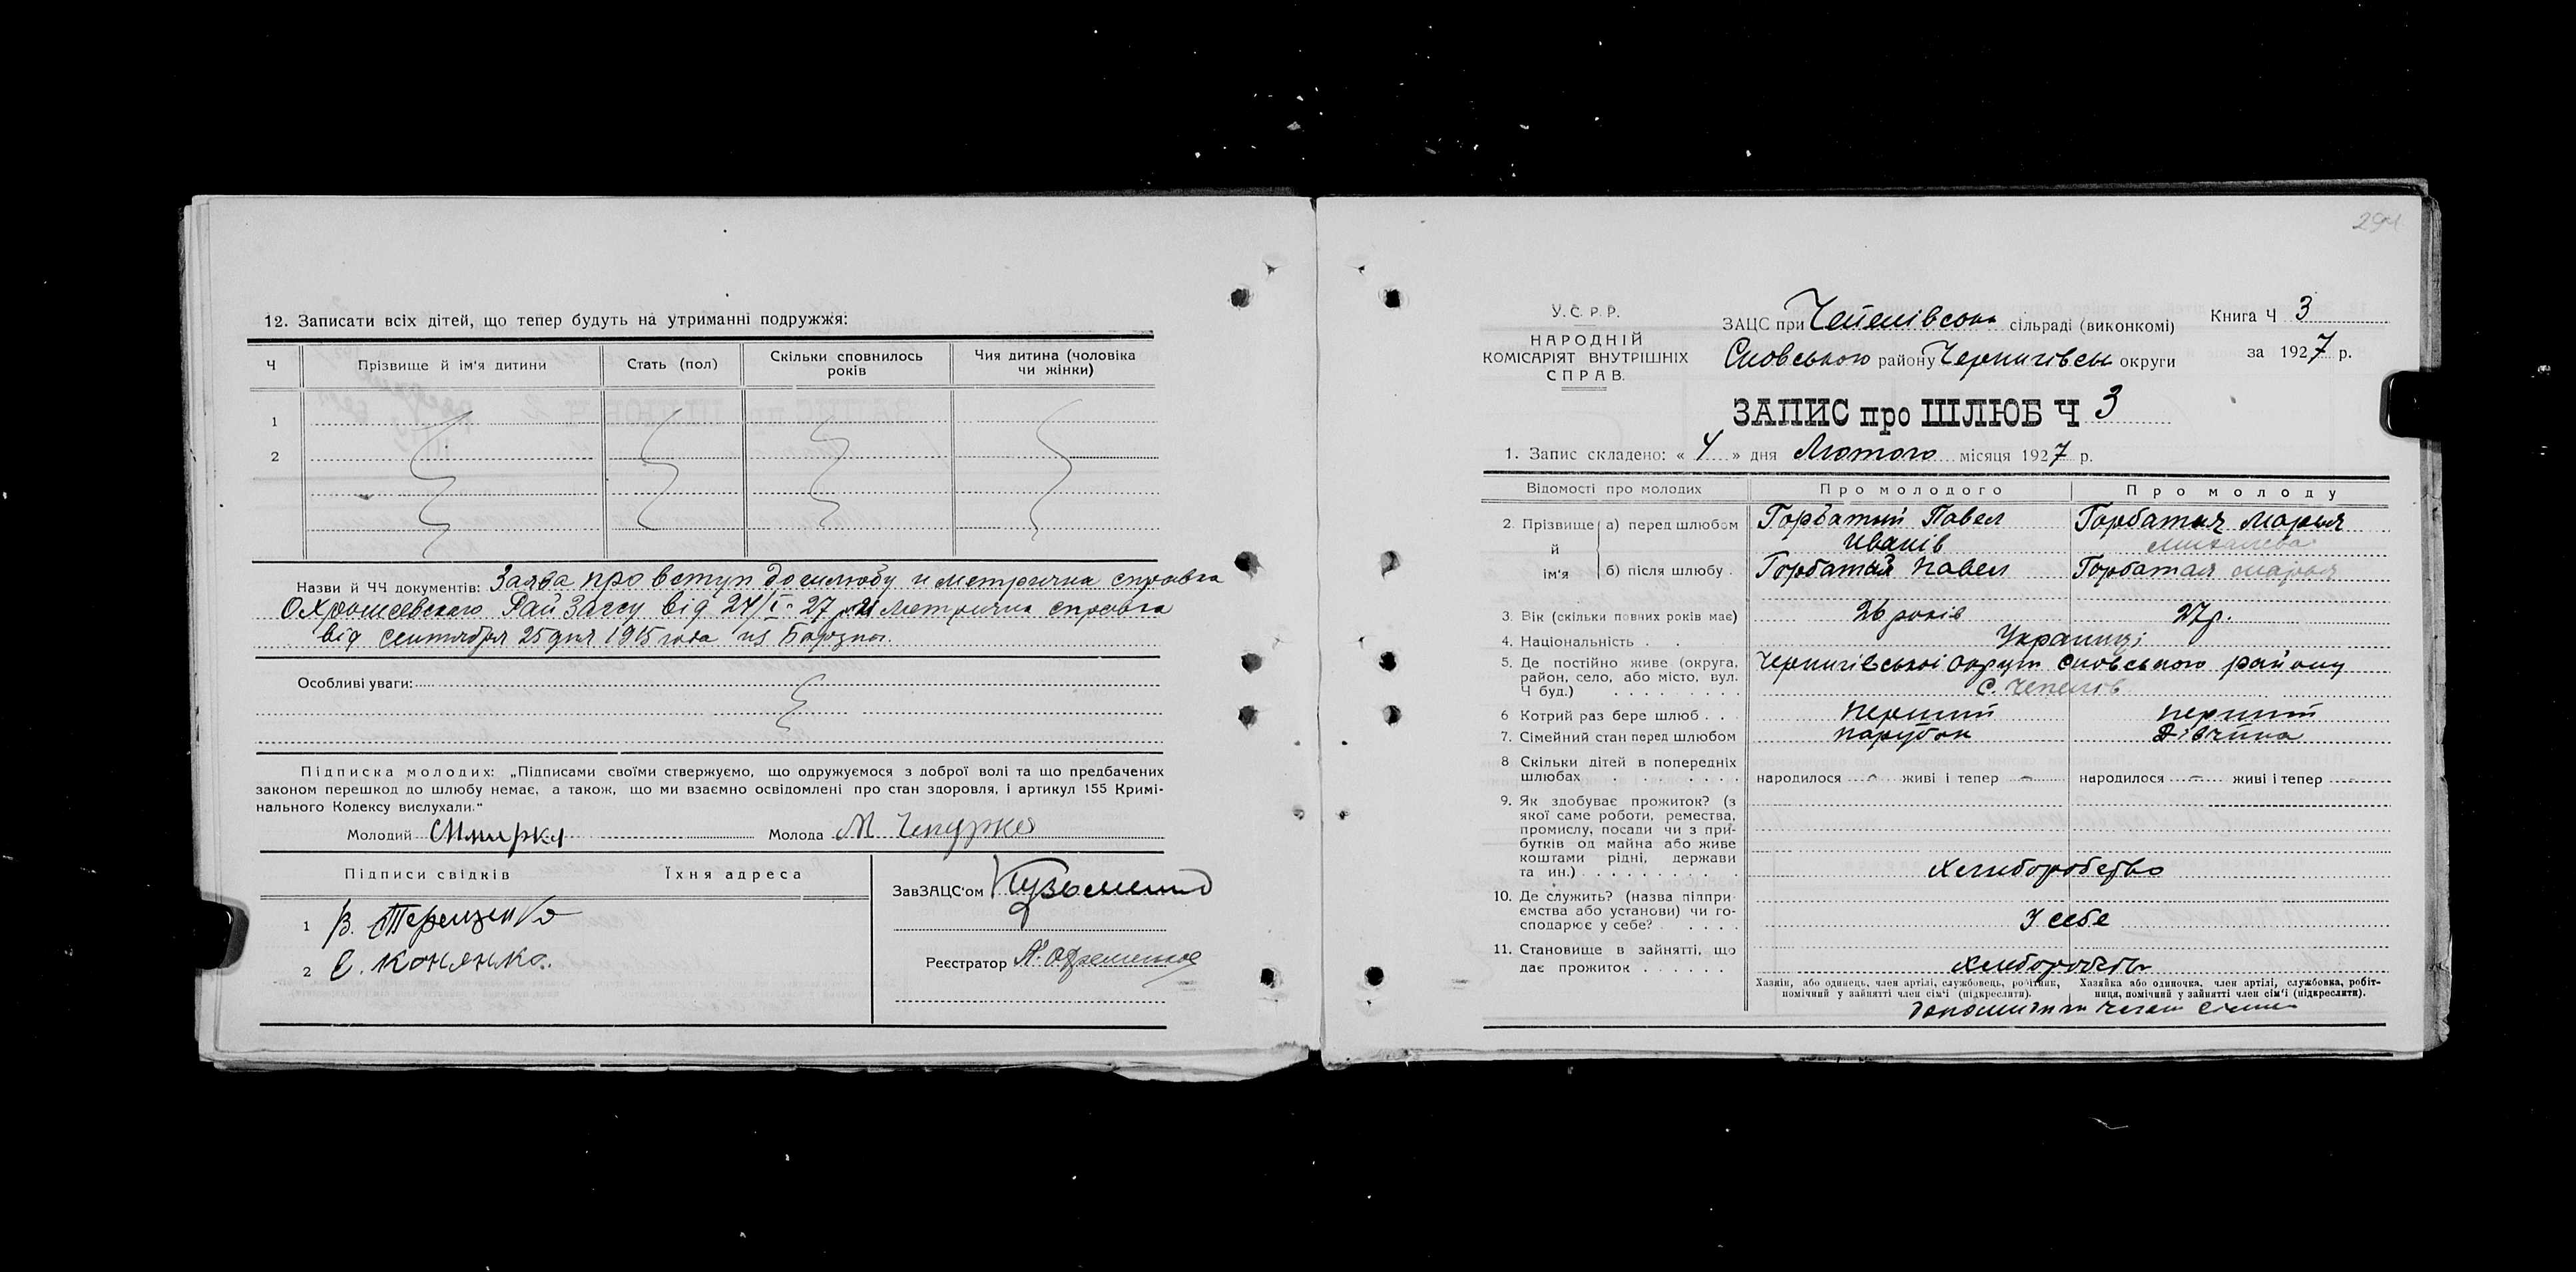 12. Записати всіх дітей, що тепер будуть на утриманні подружжя:
Ч
Прізвище й ім'я дитини
Стать (пол)
Скільки сповнилось
років
Чия дитина (чоловіка
чи жінки)
1
2
Назви й ЧЧ документів: Заява про вступ до шлюбу и метрична справка
Рай Загсу від 24/I-27 р. и метрична справка
від сентября 25 дня 1915 года из Борзны.
Особливі уваги:
Підписка молодих: „Підписами своїми стверджуємо, що одружуємося з доброї волі та що предбачених
законом перешкод до шлюбу немає, а також, що ми взаємно освідомлені про стан здоровля, і артикул 155 Кримі-
нального Кодексу вислухали."
Молодий
Молода М Чепурко
Підписи свідків
Їхня адреса
1 В. Терещенко
2 Є. Конянко.
ЗавЗАЦС'ом Кузьменко
Реєстратор
294
У.С.Р.Р.
НАРОДНІЙ
КОМІСАРІЯТ ВНУТРІШНІХ
СПРАВ.
ЗАЦС при Чепелівськ. сільраді (виконкомі)
Сновського району Чернигівськ округи
Книга Ч 3
за 1927 р.
ЗАПИС про ШЛЮБ Ч 3
1. Запис складено: « 4 » дня Лютого місяця 1927 р.
Відомості про молодих
Про молодого
Про молоду
2. Прізвище й ім'я
а) перед шлюбом
Горбатий Павел
Иванів
Горбатая Марья
б) після шлюбу
Горбатый Павел
Горбатая Марья
3. Вік (скільки повних років має)
26 років
27 р.
4. Національність
Українці
5. Де постійно живе (округа,
район, село, або місто, вул.
Ч буд.)
Чернигівської округи Сновського району
с. Чепелів
6 Котрий раз бере шлюб
перший
перший
7. Сімейний стан перед шлюбом
парубок
Дівчина
8 Скільки дітей в попередніх
шлюбах
народилося — живі і тепер —
народилося — живі і тепер —
9. Як здобуває прожиток? (з
якої саме роботи, ремества,
промислу, посади чи з при-
бутків од майна або живе
коштами рідні, держави
та ин.)
Хлиборобство
10. Де служить? (назва підпри-
ємства або установи) чи го-
сподарює у себе?
У себе
11. Становище в зайнятті, що
дає прожиток
Хазяїн, або одинець, член артілі, службовець, робітник,
помічний у зайнятті член сім'ї (підкреслити).
Хазяйка або одиночка, член артілі, службовка, робіт-
ниця, помічний у зайнятті член сім'ї (підкреслити).